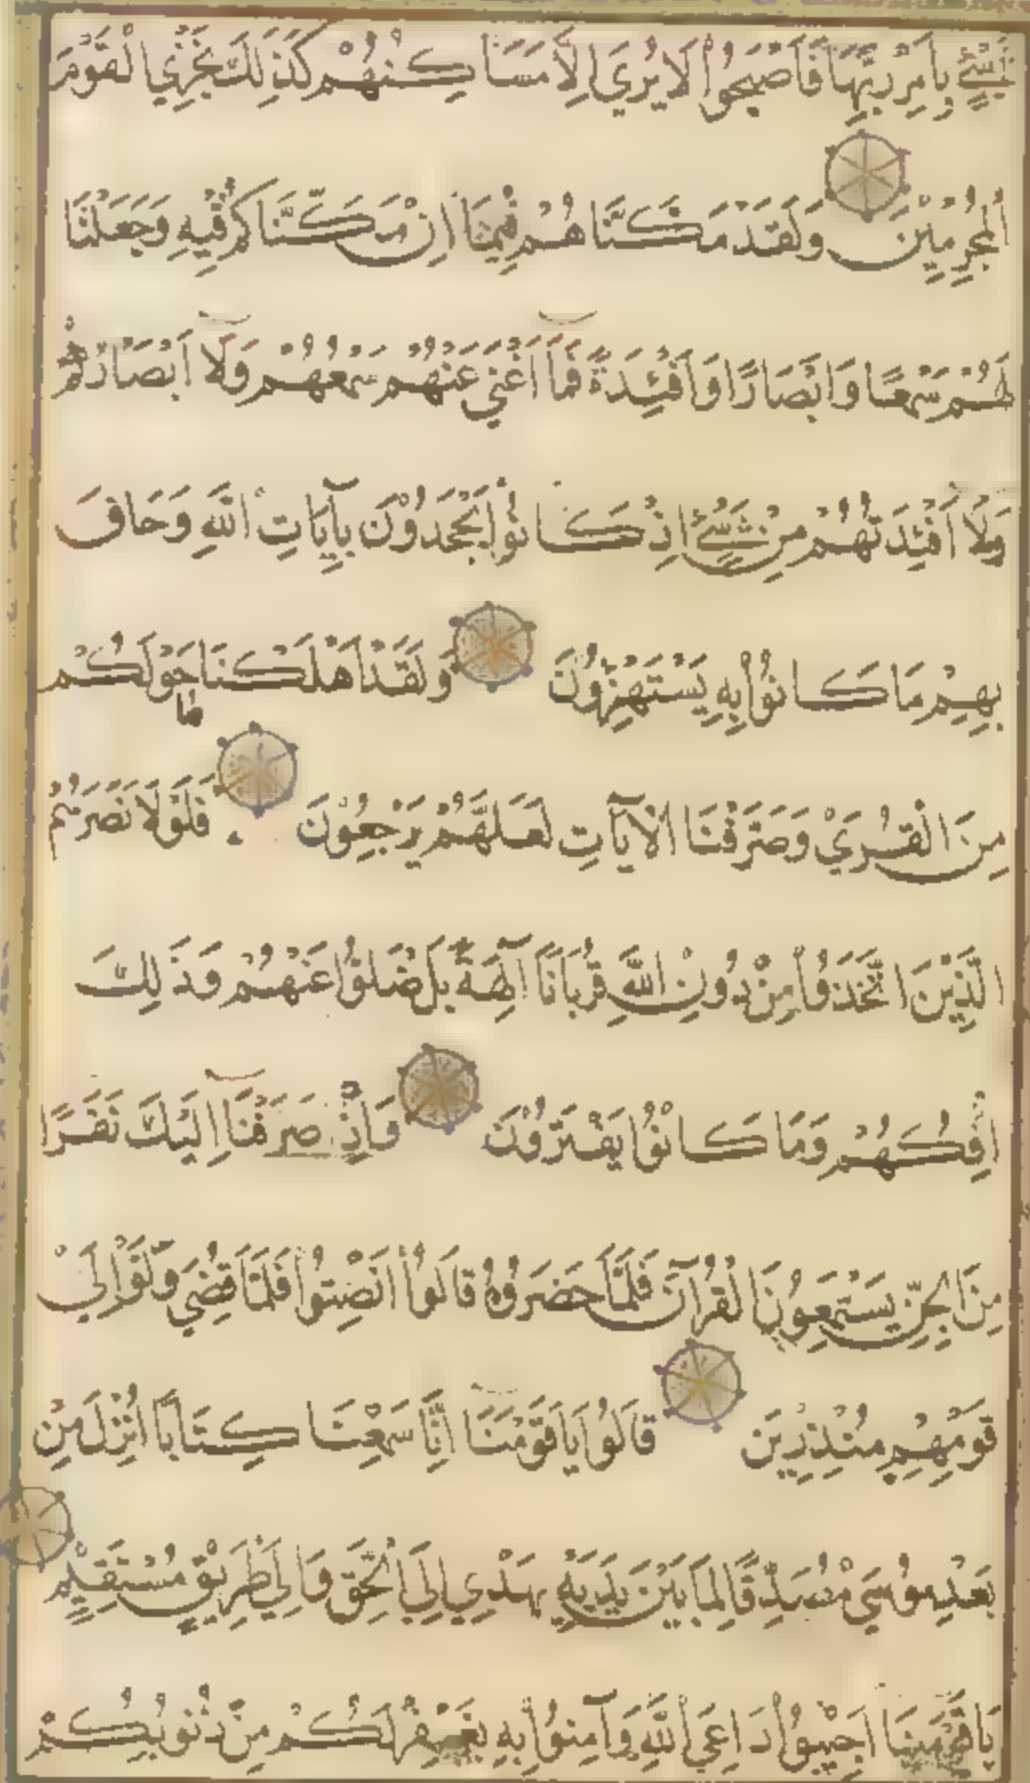 شَيْءٍ بِأَمْرِ رَبِّهَا فَأَصْبَحُوا لَا يُرَى إِلَّا مَسَاكِنُهُمْ كَذَلِكَ نَجْزِي الْقَوْمَ
الْمُجْرِمِينَ وَلَقَدْ مَكَّنَّاهُمْ فِيمَا إِنْ مَكَّنَّاكُمْ فِيهِ وَجَعَلْنَا
لَهُمْ سَمْعًا وَأَبْصَارًا وَأَفْئِدَةً فَمَا أَغْنَى عَنْهُمْ سَمْعُهُمْ وَلَا أَبْصَارُهُمْ
وَلَا أَفْئِدَتُهُمْ مِنْ شَيْءٍ إِذْ كَانُوا يَجْحَدُونَ بِآيَاتِ اللَّهِ وَحَاقَ
بِهِمْ مَا كَانُوا بِهِ يَسْتَهْزِؤُنَ وَلَقَدْ أَهْلَكْنَا مَا حَوْلَكُمْ
مِنَ الْقُرَى وَصَرَّفْنَا الْآيَاتِ لَعَلَّهُمْ يَرْجِعُونَ فَلَوْلَا نَصَرَهُمُ
الَّذِينَ اتَّخَذُوا مِنْ دُونِ اللَّهِ قُرْبَانًا آلِهَةً بَلْ ضَلُّوا عَنْهُمْ وَذَلِكَ
إِفْكُهُمْ وَمَا كَانُوا يَفْتَرُونَ وَإِذْ صَرَفْنَا إِلَيْكَ نَفَرًا
مِنَ الْجِنِّ يَسْتَمِعُونَ الْقُرْآنَ فَلَمَّا حَضَرُوهُ قَالُوا أَنْصِتُوا فَلَمَّا قُضِيَ وَلَّوْا إِلَى
قَوْمِهِمْ مُنْذِرِينَ قَالُوا يَا قَوْمَنَا إِنَّا سَمِعْنَا كِتَابًا أُنْزِلَ مِنْ
بَعْدِ مُوسَى مُصَدِّقًا لِمَا بَيْنَ يَدَيْهِ يَهْدِي إِلَى الْحَقِّ وَإِلَى طَرِيقٍ مُسْتَقِيمٍ
يَا قَوْمَنَا أَجِيبُوا دَاعِيَ اللَّهِ وَآمِنُوا بِهِ يَغْفِرْ لَكُمْ مِنْ ذُنُوبِكُمْ